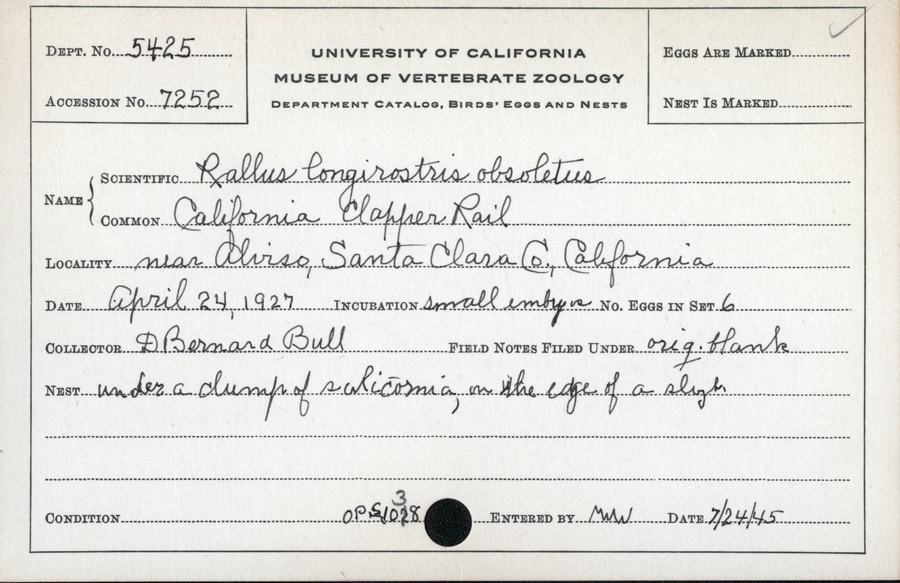 DEPT. No. 5425
UNIVERSITY OF CALIFORNIA
MUSEUM OF VERTEBRATE ZOOLOGY
DEPARTMENT CATALOG, BIRDS' EGGS AND NESTS
EGGS ARE MARKED
ACCESSION No. 7252
NEST IS MARKED
NAME
SCIENTIFIC Rallus longirostris obsoletus
COMMON California Clapper Rail
LOCALITY near Alviso, Santa Clara Co., California
DATE April 24, 1927 INCUBATION small embryos No. EGGS IN SET 6
COLLECTOR D Bernard Bull FIELD NOTES FILED UNDER orig. blank
NEST under a clump of salicornia, on the edge of a slough
CONDITION ENTERED BY MWW DATE 7/24/45